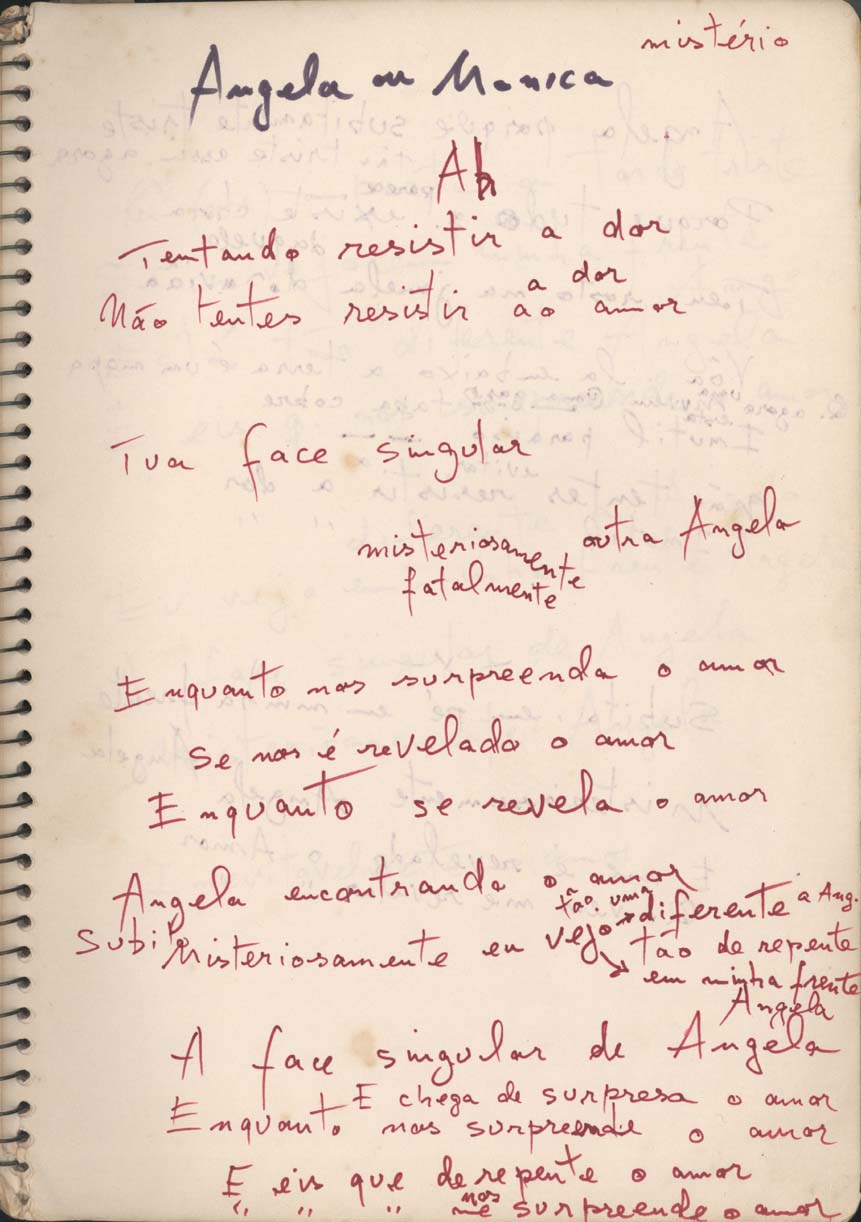 mistério
Angela ou Monica
Ah
Tentando resistir a dor
a dor
Não tentes resistir ao amor
Tua face singular
misteriosamente outra Angela
fatalmente
Enquanto nos surpreenda o amor
Se nos é revelado o amor
Enquanto se revela o amor
Angela encontrando o amor
tão uma diferente a Ang.
Subito Misteriosamente eu vejo tão de repente
em minha frente
Angela
A face singular de Angela
E chega de surpresa o amor
Enquanto nos surpreende o amor
E eis que de repente o amor
" " " nos me surpreende o amor